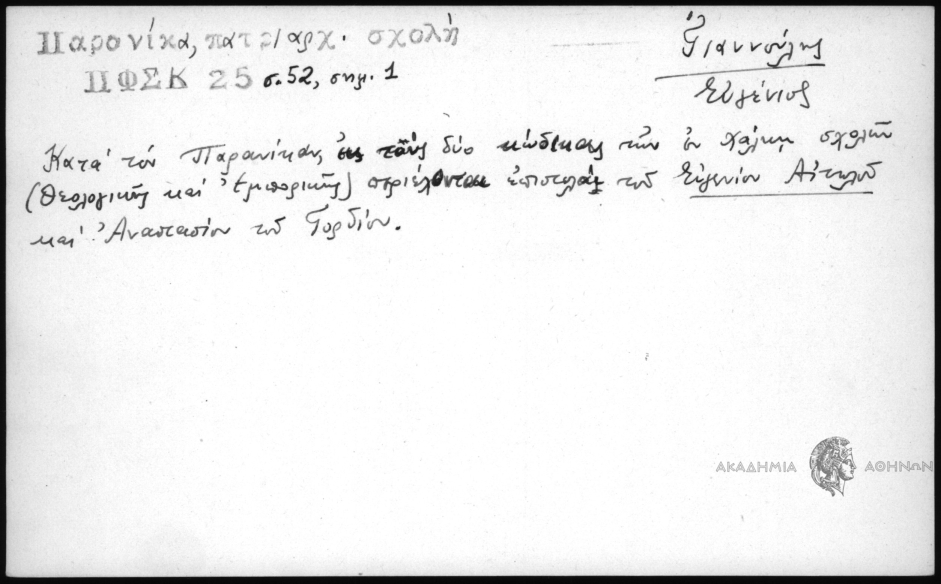 Παρανίκα, πατριαρχ. σχολή
ΠΦΣΚ 25 σ. 52, σημ. 1
Γιαννούλης
Εὐγένιος
Κατά τόν Παρανίκαν, εἰς τοὺς δύο κώδικας τῶν ἐν Χάλκῃ σχολῶν
(Θεολογικῆς καί Ἐμπορικῆς) περιέχονται ἐπιστολαί τοῦ Εὐγενίου Αἰτωλοῦ
καί Ἀναστασίου τοῦ Γορδίου.
ΑΚΑΔΗΜΙΑ ΑΘΗΝΩΝ